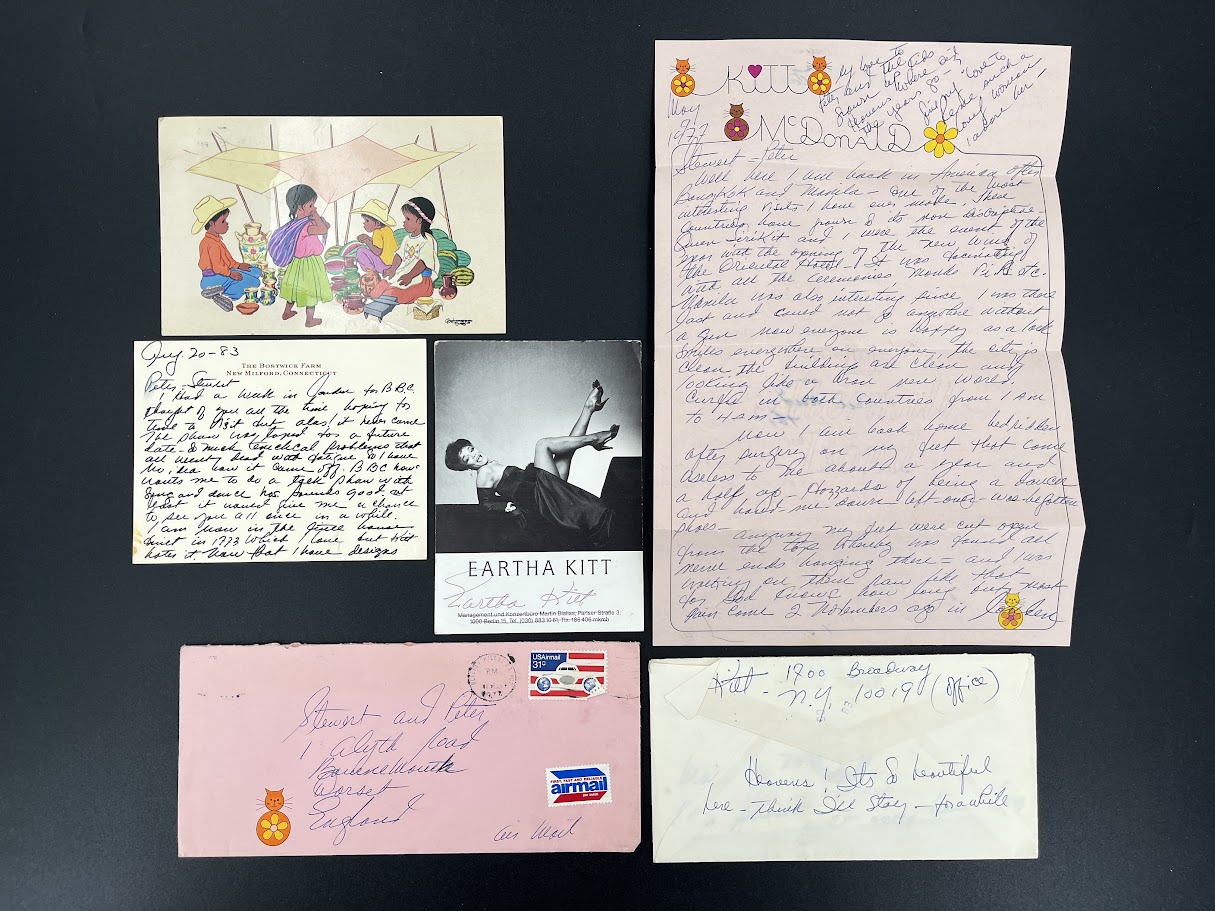 Aug. 20-83
THE BOSTWICK FARM
NEW MILFORD, CONNECTICUT
Peter - Stewert
I had a week in London for B.B.C.
thought of you all the time hoping for
time to visit but alas! it never came
The show was taped for a future
date - so much technical problems that
all went dead with fatigue so I have
no idea how it came off. BBC now
wants me to do a talk show with
song and dance - sounds good. at
least it would give me a chance
to see you all once in a while.
I am now in the house
built in 1773 which I love but Kitt
hates it. Now that I have designs
EARTHA KITT
Eartha Kitt
Management und Konzertbüro Martin Pariser Straße 3,
1000 Berlin 15, Tel. (030) 883 10 61, Tlx. 186 406 mkmb
KITT
McDONALD
May
1977
My love to
Peter and the kids
grown up
Heavens where did
the years go -
Give my love to
such a
lovely woman
I adore her -
Stewert - Peter
Well here I am back in America after
Bangkok and Manila - one of the most
interesting visits I have ever made. These
countries have power
Queen Sirikit and I were the event of the
year with the opening of the new wing of
the Oriental Hotel - It was fascinating
and all the ceremonies Monks V.i.P. etc.
Manila was also interesting since I was there
last and could not go anywhere without
a gun now everyone is happy as a lark
smiles everywhere on everyone, the city is
clean the buildings are clean and
looking like a bran new world.
Curfew in both countries from 1 AM
to 4 am -
Now I am back home bedridden
after surgery on my feet that came
useless to me about a year and
a half ago - Hazzards of being a dancer
and hand-me-down left over - was-be-gotten
shoes -
anyway my feet were cut open
from the top whereby was found all
nerve ends hanging there = and I was
walking on them how like that
for God knows how long but most
pain came 2 Novembers ago in London
USAirmail
31c
PM
Stewert and Peter
1 Alyth Road
Bournemouth
Dorset
England
air Mail
FIRST, FAST AND RELIABLE
airmail
Kitt - 1700 Broadway
N.Y. 10019 (office)
Heavens! Its so beautiful
here - think I'll stay - for awhile